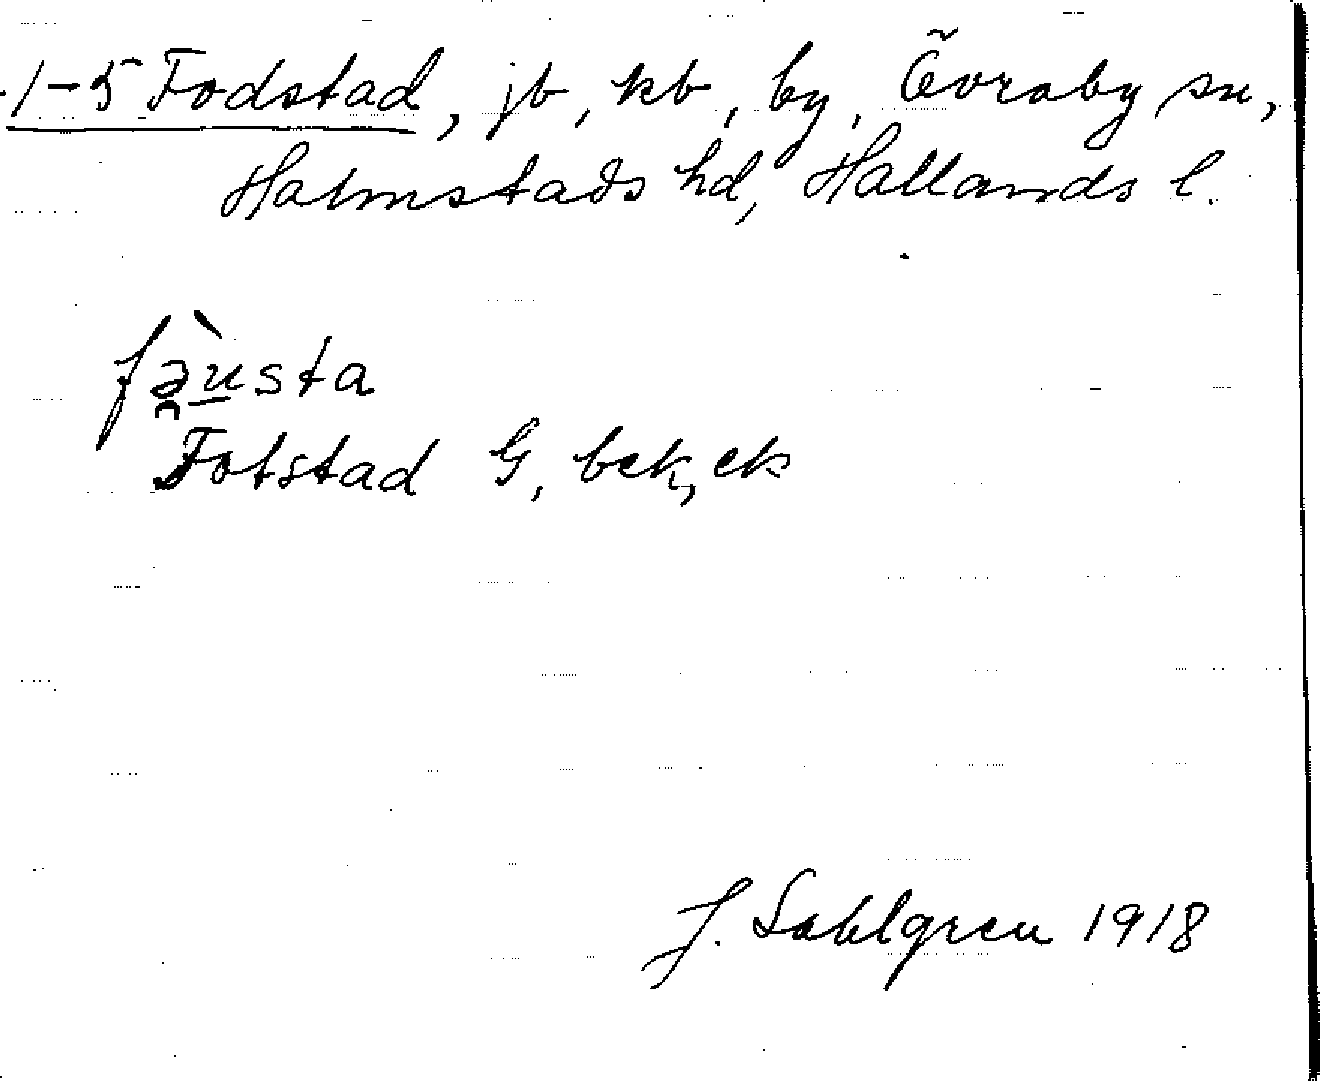 1-5 Fodstad, jb, kb, by, Övraby sn,
Halmstads hd, Hallands l.
fə̯̀usta
Fotstad G, bek, ek
J. Sahlgren 1918